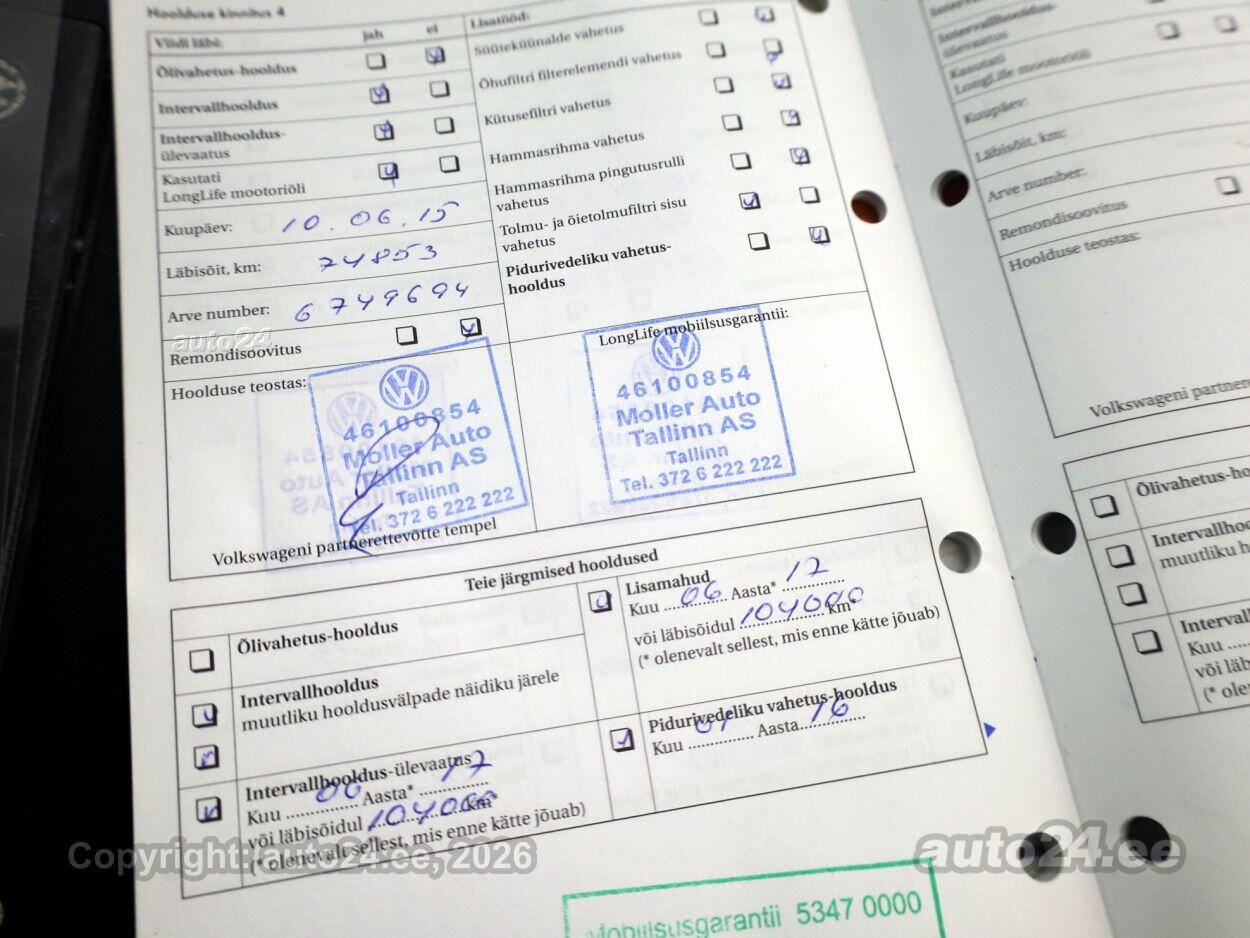 Hoolduse kinnitus 4
Viidi läbi: jah ei
Õlivahetus-hooldus
Intervallhooldus
Intervallhooldus-
ülevaatus
Kasutati
LongLife mootoriõli
Kuupäev: 10.06.15
Läbisõit, km: 74853
Arve number: 6749694
Remondisoovitus
Hoolduse teostas:
46100854
Moller Auto
Tallinn AS
Tallinn
Tel. 372 6 222 222
Volkswageni partnerettevõtte tempel
Lisatööd:
Süüteküünalde vahetus
Õhufiltri filterelemendi vahetus
Kütusefiltri vahetus
Hammasrihma vahetus
Hammasrihma pingutusrulli
vahetus
Tolmu- ja õietolmufiltri sisu
vahetus
Pidurivedeliku vahetus-
hooldus
LongLife mobiilsusgarantii:
46100854
Moller Auto
Tallinn AS
Tallinn
Tel. 372 6 222 222
Teie järgmised hooldused
Õlivahetus-hooldus
Intervallhooldus
muutliku hooldusvälpade näidiku järele
Intervallhooldus-ülevaatus
Kuu 06 Aasta* 17
või läbisõidul 104000 km*
(* olenevalt sellest, mis enne kätte jõuab)
Lisamahud
Kuu 06 Aasta* 17
või läbisõidul 104000 km*
(* olenevalt sellest, mis enne kätte jõuab)
Pidurivedeliku vahetus-hooldus
Kuu 01 Aasta 16
Mobiilsusgarantii 5347 0000
Intervallhooldus-
ülevaatus
Kasutati
LongLife mootoriõli
Kuupäev:
Läbisõit, km:
Arve number:
Remondisoovitus
Hoolduse teostas:
Volkswageni partnere
Õlivahetus-ho
Intervallhoo
muutliku hoo
Interval
Kuu
või läb
(* ole
auto24
Copyright: auto24.ee, 2026
auto24.ee